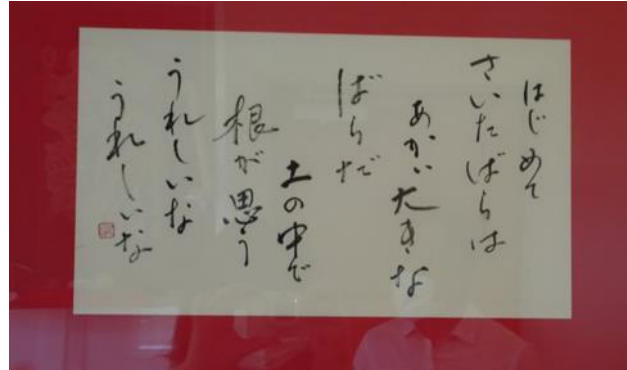 はじめて
さいたばらは
あかい大きな
ばらだ
土の中で
根が思う
うれしいな
うれしいな